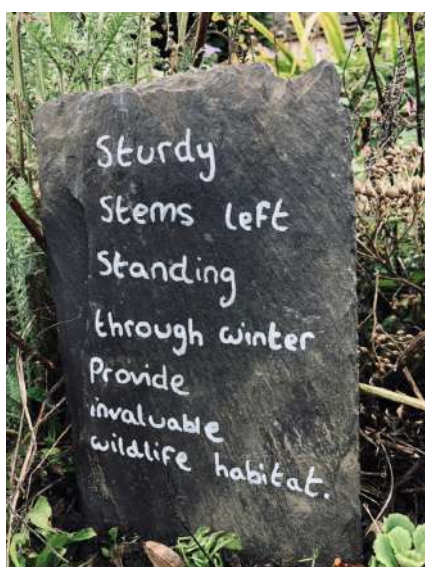 Sturdy
Stems left
Standing
through winter
Provide
invaluable
wildlife habitat.